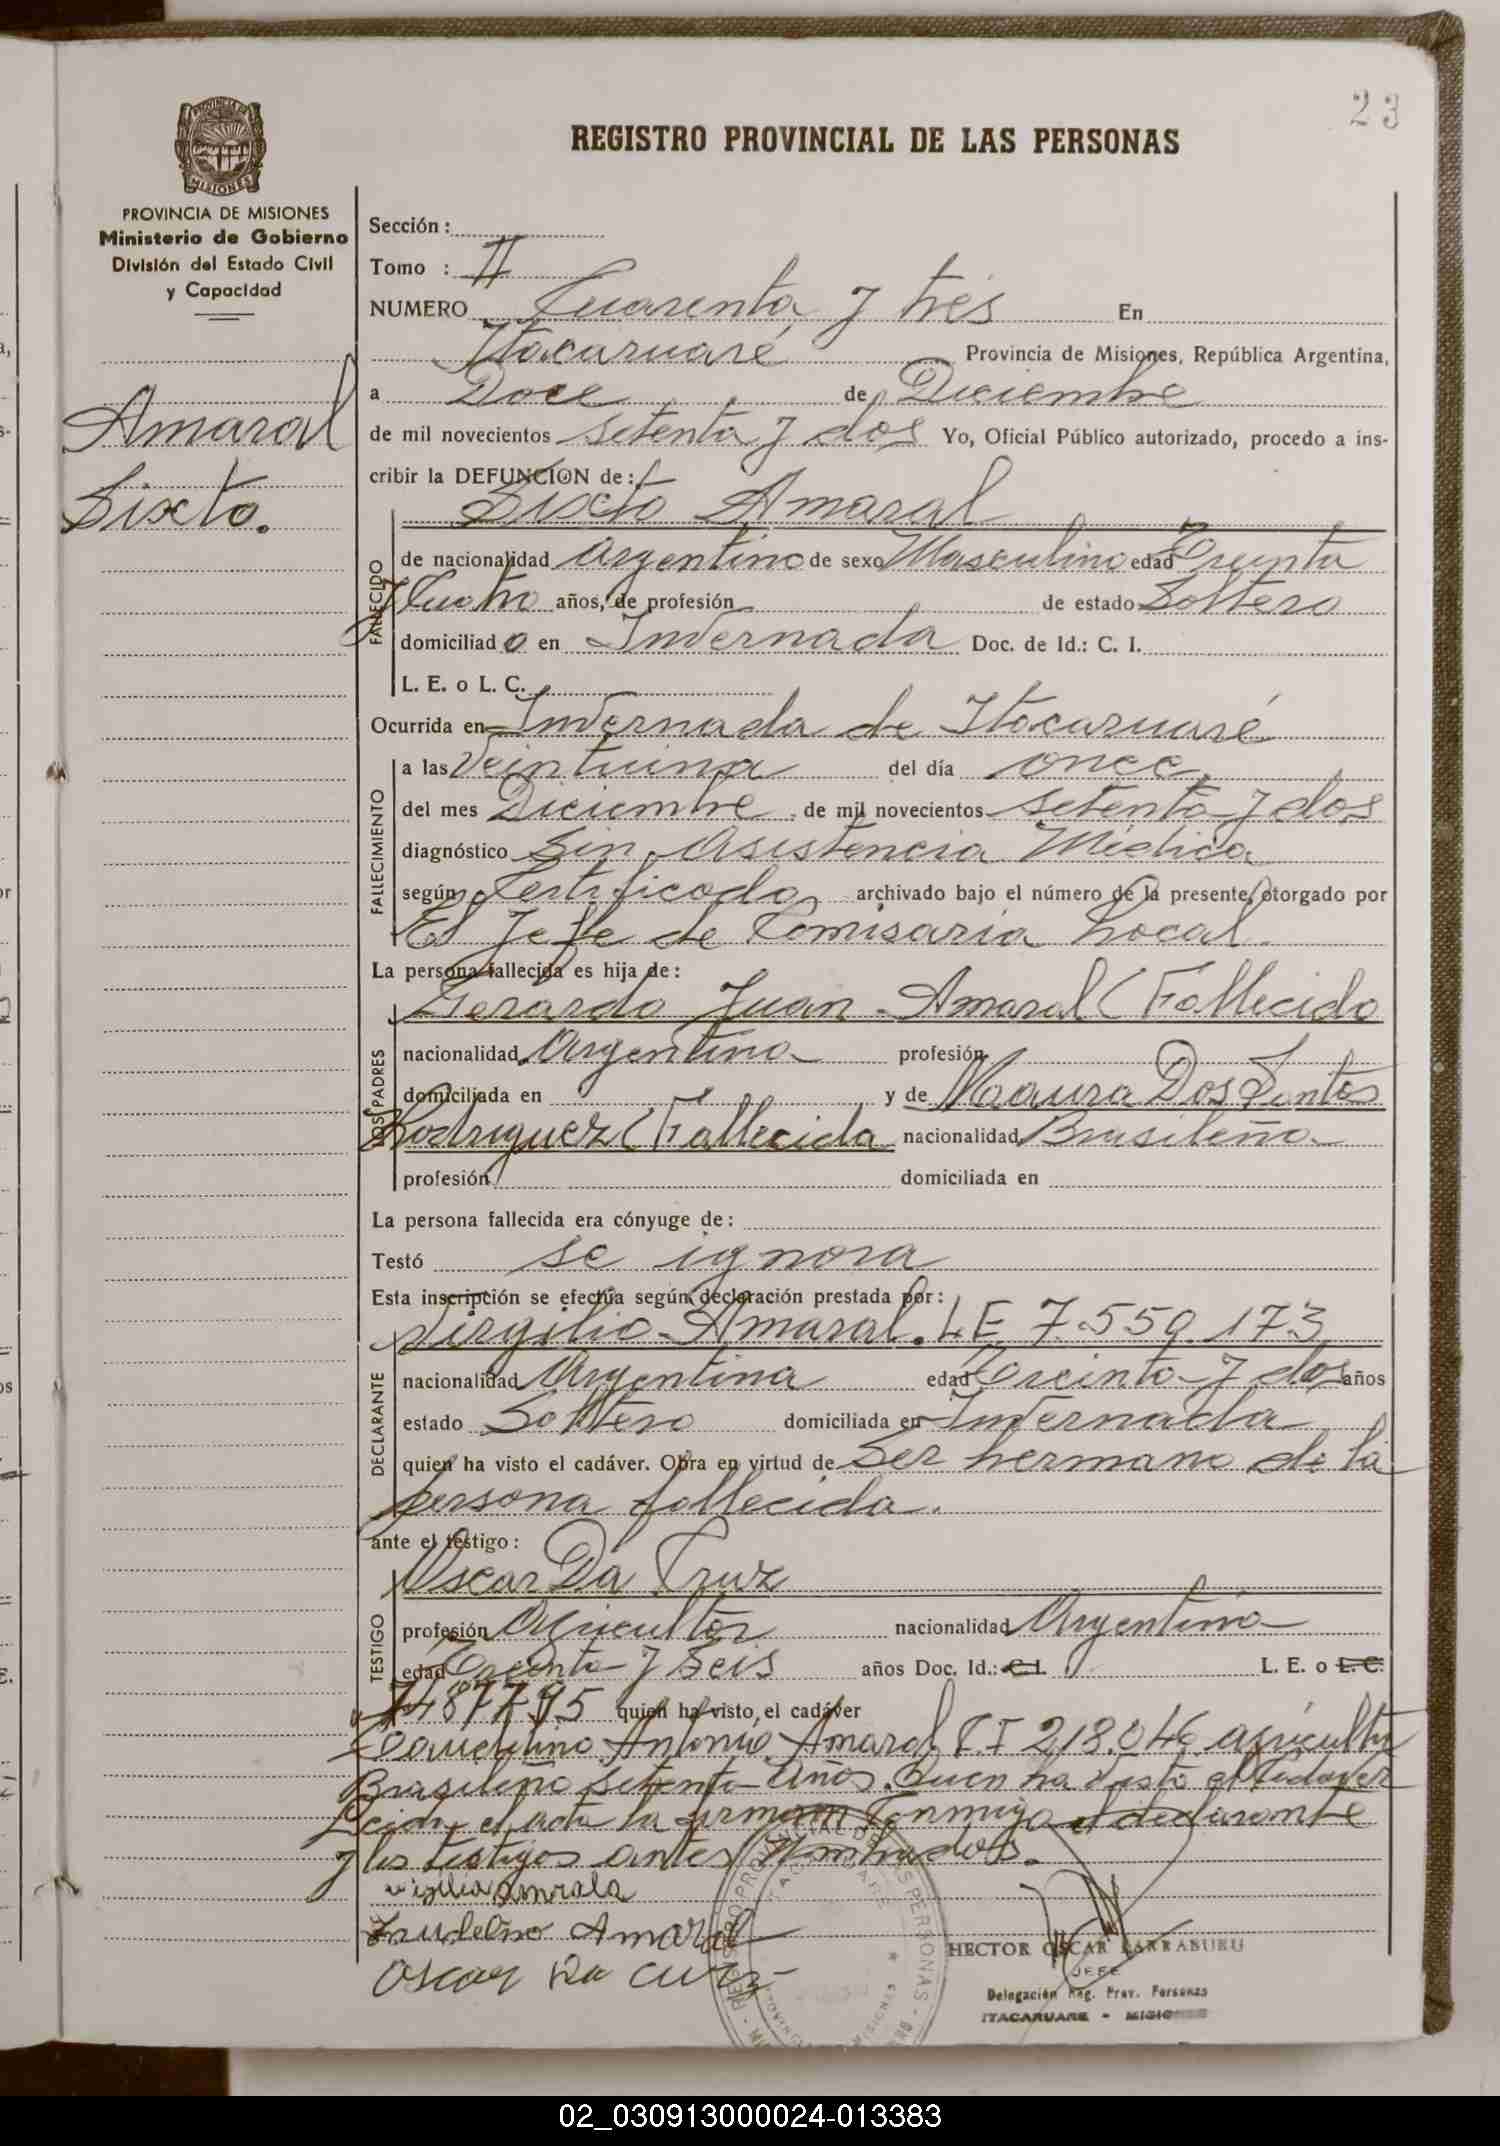 23
REGISTRO PROVINCIAL DE LAS PERSONAS
PROVINCIA DE MISIONES
Ministerio de Gobierno
División del Estado Civil
y Capacidad
Amaral
Sixto.
Sección:
Tomo : II
NUMERO Cuarenta y trés En
Itacaruaré Provincia de Misiones, República Argentina,
a Doce de Diciembre
de mil novecientos setenta y dos Yo, Oficial Público autorizado, procedo a ins-
cribir la DEFUNCION de:
Sixto Amaral
FALLECIDO
de nacionalidad Argentino de sexo Masculino edad Treinta
y Cuatro años, de profesión de estado Soltero
domiciliado en Invernada Doc. de Id.: C. I.
L. E. o L. C.
Ocurrida en Invernada de Itacaruaré
FALLECIMIENTO
a las Veintiuna del día once
del mes Diciembre de mil novecientos setenta y dos
diagnóstico Sin Asistencia Médica
según Certificado archivado bajo el número de la presente, otorgado por
El Jefe de Comisaria Local
La persona fallecida es hija de:
Gerardo Juan Amaral (Fallecido
PADRES
nacionalidad Argentina profesión
domiciliada en y de Maura Dos Santos
Rodriguez (Fallecida nacionalidad Brasileña
profesión domiciliada en
La persona fallecida era cónyuge de:
Testó se ignora
Esta inscripción se efectúa según declaración prestada por:
Virgilio Amaral. L.E. 7.559.173
DECLARANTE
nacionalidad Argentina edad Treinta y dos años
estado Soltero domiciliada en Invernada
quien ha visto el cadáver. Obra en virtud de Ser hermano de la
persona fallecida.
ante el testigo:
Oscar Da Cruz
TESTIGO
profesión Agricultor nacionalidad Argentina
edad Treinta y Seis años Doc. Id.: C. I. L. E. o L. C.
quien ha visto el cadáver
Antonio Amaral C.I 218.046 agricultor
Brasileño setenta años. Quien ha visto el Cadaver
Leida el acta la firman Conmigo el declarante
y los testigos antes nombrados.
Amaral
Oscar Da Cruz
HECTOR OSCAR LARRABURU
JEFE
Delegación Reg. Prov. Personas
ITACARUARE - MISIONES
02_030913000024-013383